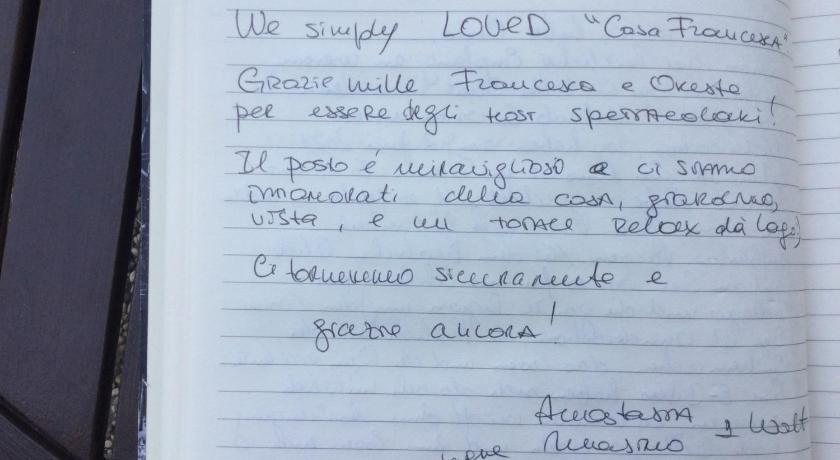 We simply LOVED "Casa Francesca"
Grazie mille Francesca e Oreste
per essere degli host spettacolari!
Il posto è meraviglioso e ci siamo
innamorati della casa, giardino,
vista, e un totale relax da lago)
Ci torneremo sicuramente e
grazie ancora!
Anastasia
Walt